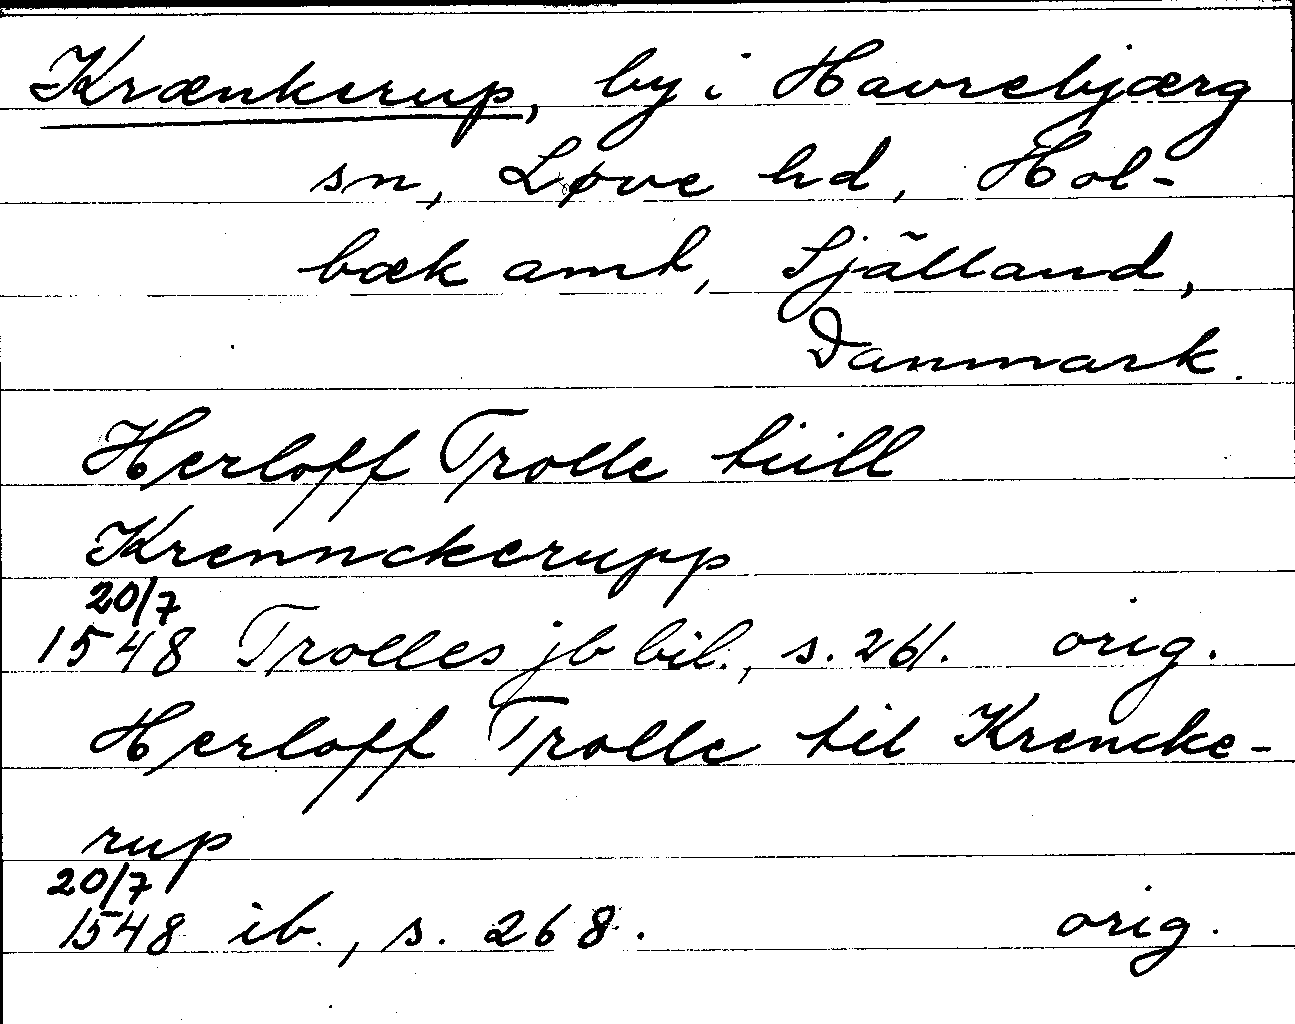 Krænkerup, by i Havrebjærg
sn, Løve hd, Hol-
bæk amt, Själland,
Danmark.
Herloff Trolle tiill
Krennckerupp
20/7
1548 Trolles jb bil., s. 261. orig.
Herloff Trolle til Krencke-
rup
20/7
1548 ib., s. 268. orig.